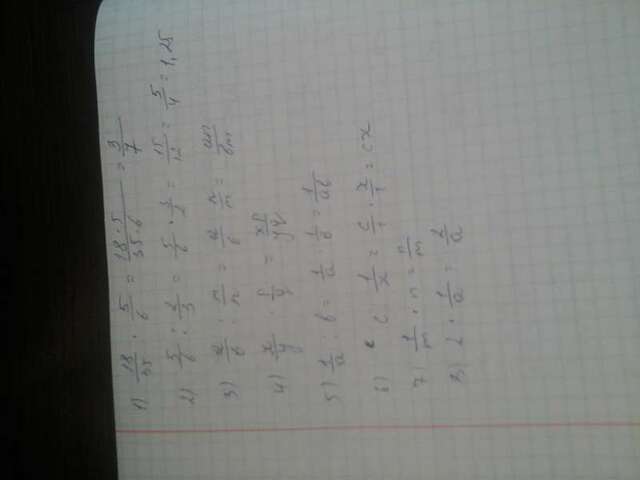 1) 18/35 · 5/6 = 18·5/35·6 = 3/7
2) 5/6 : 2/3 = 5/6 · 3/2 = 15/12 = 5/4 = 1,25
3) a/b : m/n = a/b · n/m = an/bm
4) x/y · p/q = xp/yq
5) 1/a : b = 1/a · 1/b = 1/ab
6) c : 1/x = c/1 · x/1 = cx
7) 1/m · n = n/m
8) 2 · 1/a = 2/a